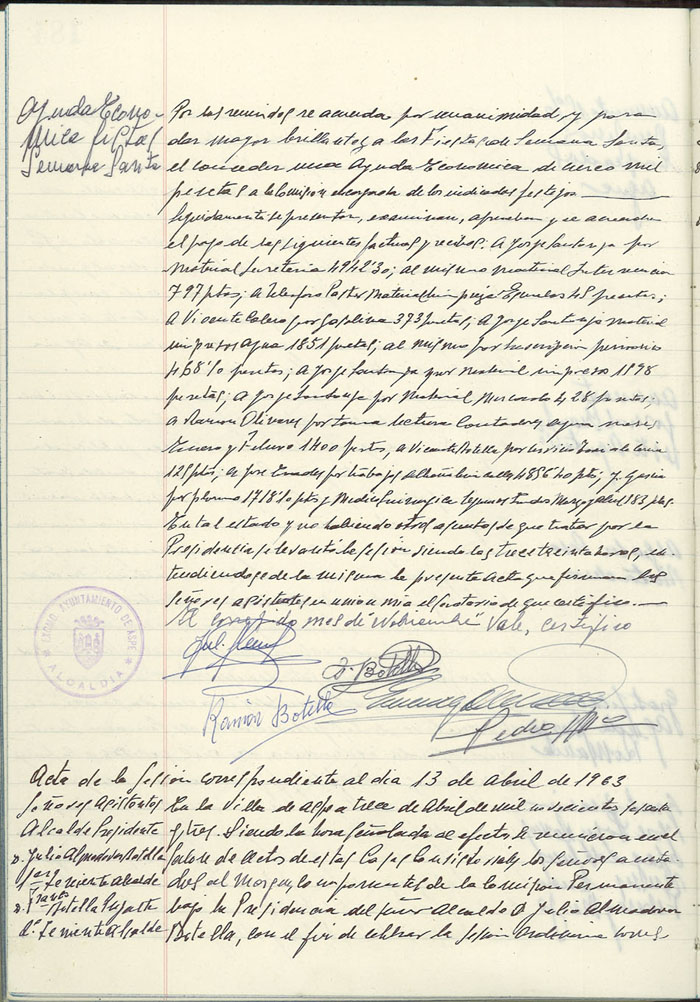 Ayuda Econo-
mica fiestas
Semana Santa
Por los reunidos se acuerda por unanimidad, y para
dar mayor brillantez a las Fiestas de Semana Santa,
el conceder una Ayuda Economica de cinco mil
pesetas a la Comision encargada de los indicados festejos
Seguidamente se presentan, examinan, aprueban y se acuerda
el pago de las siguientes facturas y recibos: A Jorge Santonja por
Material Secretaria 4942'30; al mismo material Intervencion
797 ptas; a Telesforo Pastor Material limpieza Escuelas 45 pesetas;
A Vicente Calero por gasolina 373 pesetas; A Jorge Santonja material
impresos agua 1851 pesetas; al mismo por suscripcion periodico
468'10 pesetas; A Jorge Santonja por material impreso 1898
pesetas; A Jorge Santonja por Material Mercado 428 pesetas;
a Ramon Olivares por toma lectura Contadores agua meses
Enero y Febrero 1400 pesetas, a Vicente Botella por servicio
125 pts; a Jose por trabajos Albañileria 4856'40 pts; J. Garcia
por 1718'10 pts y 183 ptas.
En tal estado y no habiendo otros asuntos de que tratar por la
Presidencia se levantó la sesion siendo las trece treinta horas, ex-
tendiendose de la misma la presente Acta que firman los
señores asistentes en union mia el secretario de que certifico.
El mes de "Noviembre" Vale, certifico
MAGCO. AYUNTAMIENTO DE ASPE
ALCALDIA
J. Botella
Ramón Botella
Pedro
Acta de la Sesion correspondiente al dia 13 de Abril de 1963
Señores Asistentes
Alcalde Presidente
D. Julio Almodovar Botella
1er Teniente Alcalde
D. Botella Pujalte
2º Teniente Alcalde
En la villa de Aspe a trece de Abril de mil novecientos sesenta
y tres. Siendo la hora señalada al efecto se reunieron en el
salon de Actos de estas Casas Consistoriales los señores anota-
dos al Margen, componentes de la Comision Permanente
bajo la Presidencia del señor Alcalde D. Julio Almodovar
Botella, con el fin de celebrar la sesion ordinaria corres